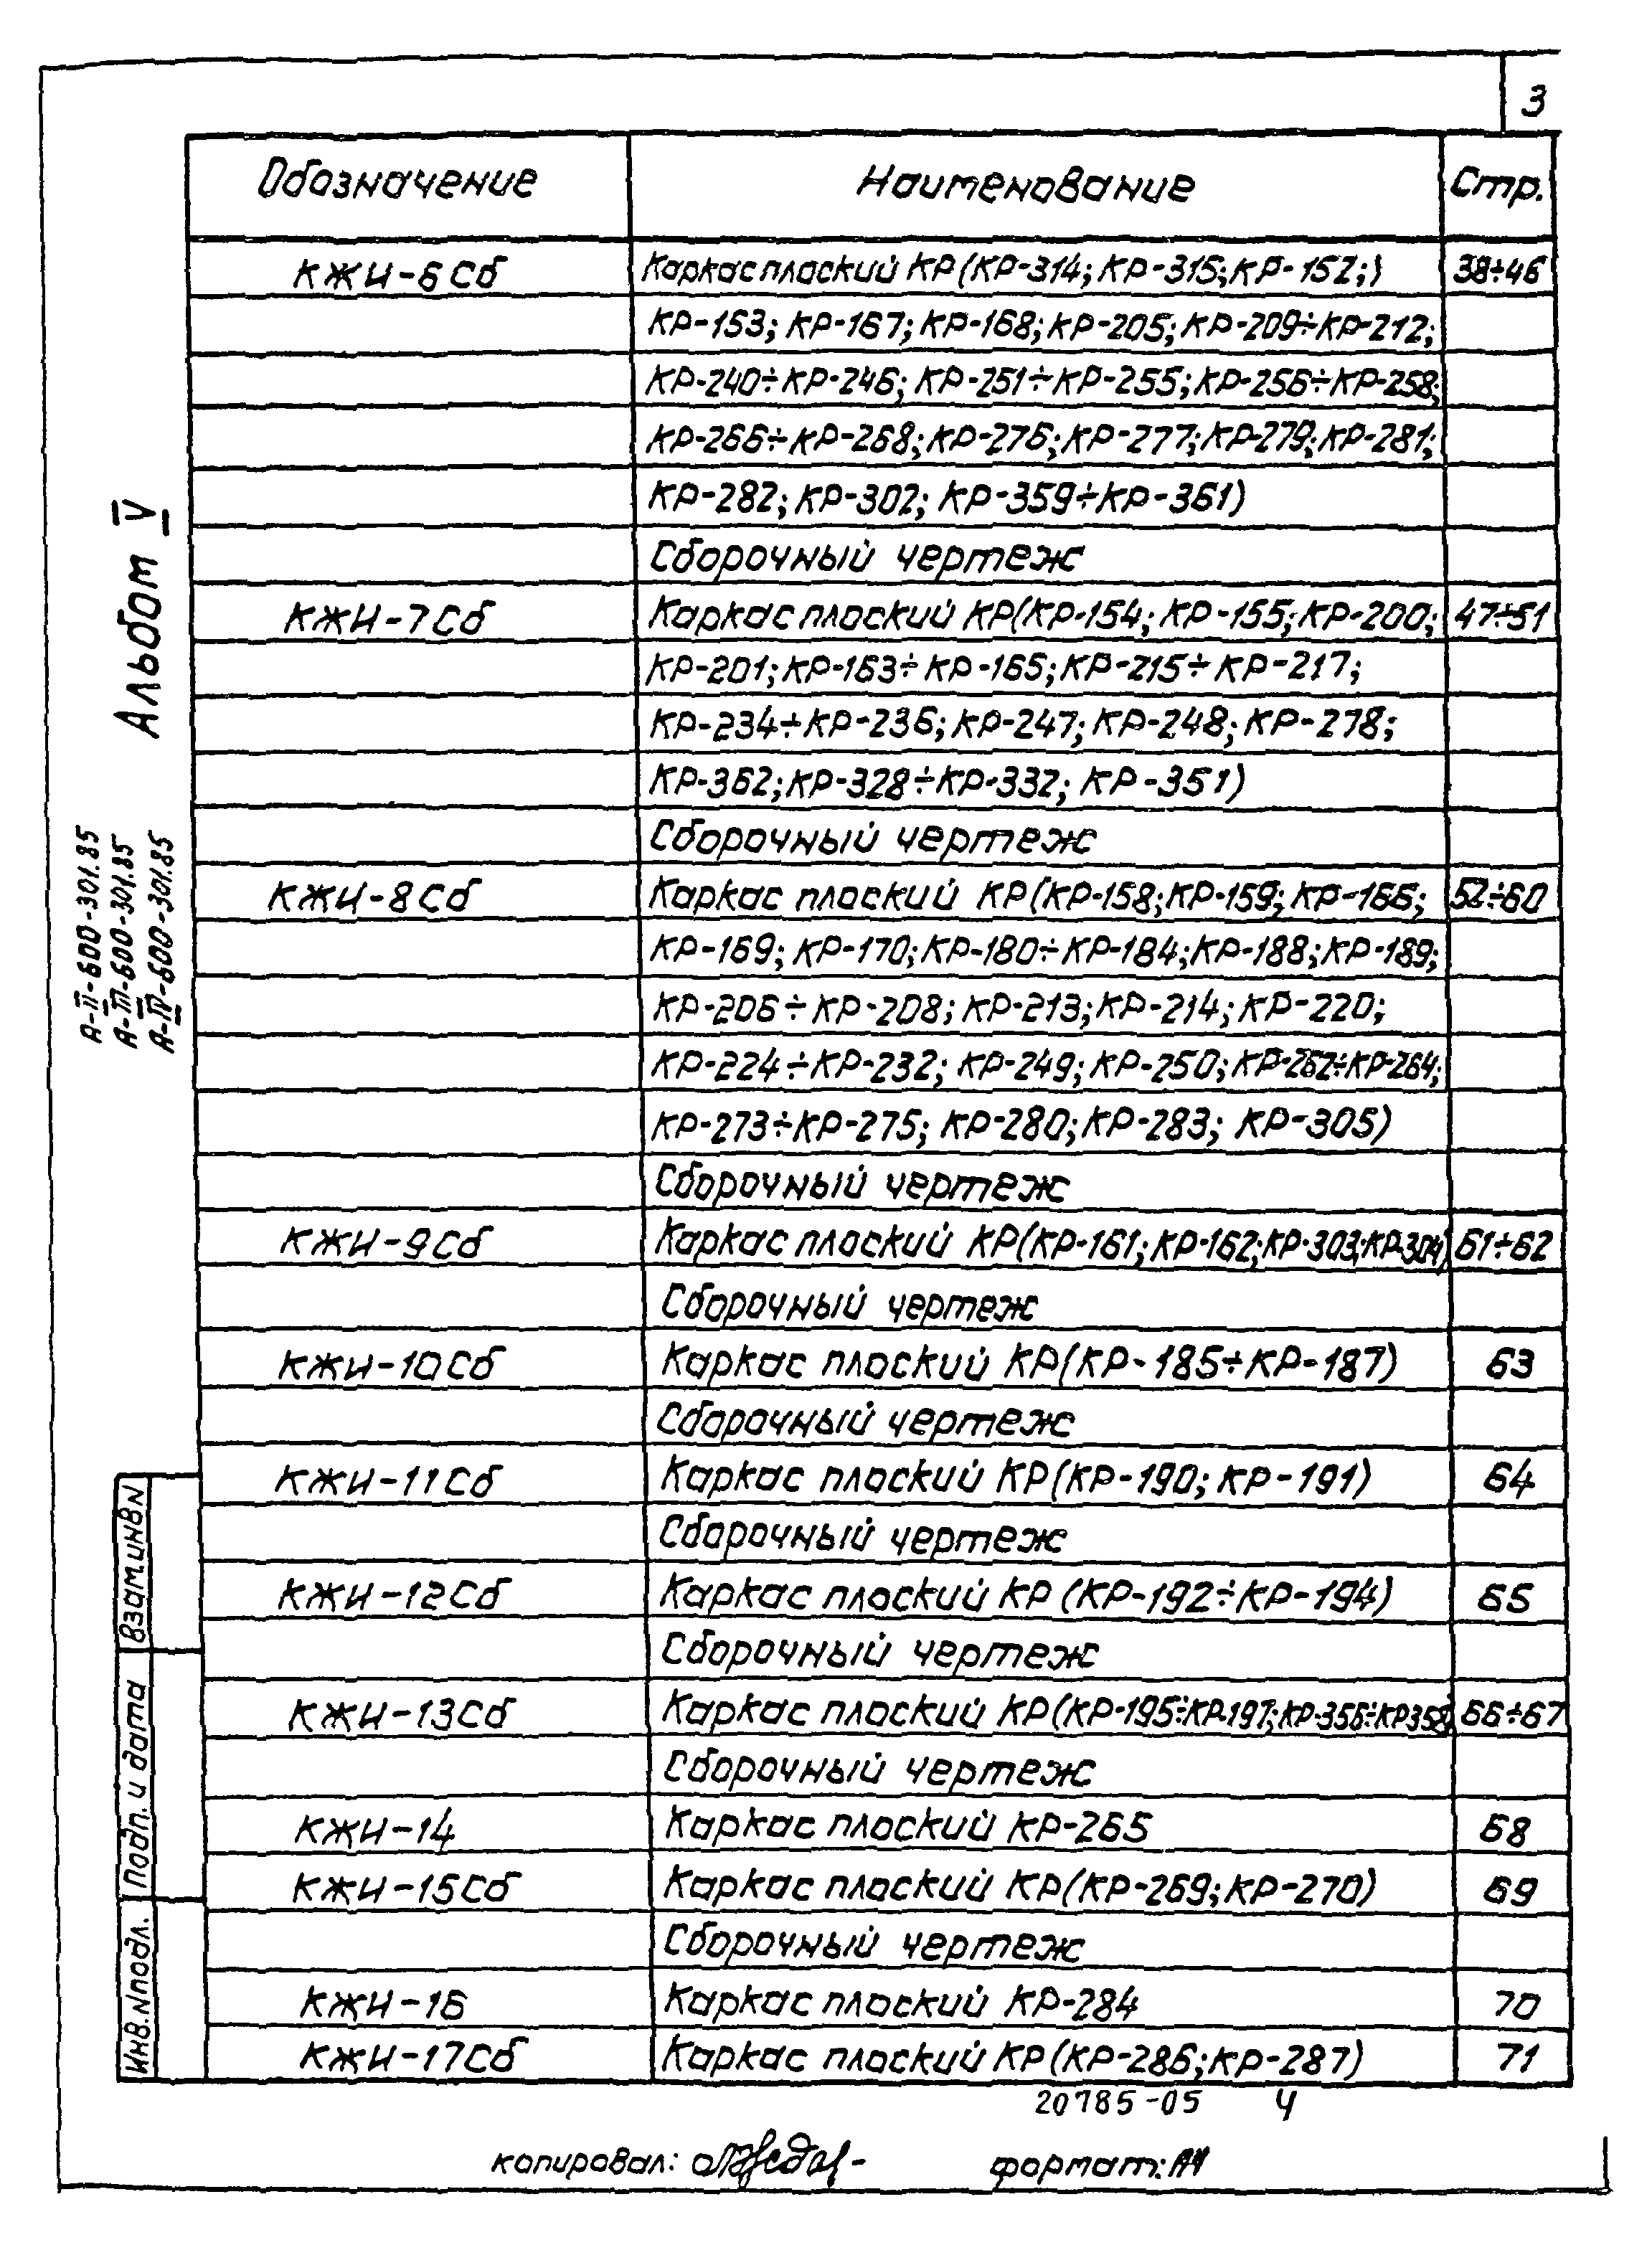 3
Обозначение Наименование Стр.
КЖИ-6Сб Каркас плоский КР(КР-314; КР-315; КР-152;) 38÷46
КР-153; КР-167; КР-168; КР-205; КР-209÷КР-212;
КР-240÷КР-246; КР-251÷КР-255; КР-256÷КР-258;
КР-266÷КР-268; КР-276; КР-277; КР-279; КР-281;
КР-282; КР-302; КР-359÷КР-361)
Сборочный чертеж
КЖИ-7Сб Каркас плоский КР(КР-154; КР-155; КР-200; 47÷51
КР-201; КР-163÷КР-165; КР-215÷КР-217;
КР-234÷КР-236; КР-247; КР-248; КР-278;
КР-362; КР-328÷КР-332; КР-351)
Сборочный чертеж
КЖИ-8Сб Каркас плоский КР(КР-158; КР-159; КР-166; 52÷60
КР-169; КР-170; КР-180÷КР-184; КР-188; КР-189;
КР-206÷КР-208; КР-213; КР-214; КР-220;
КР-224÷КР-232; КР-249; КР-250; КР-262÷КР-264;
КР-273÷КР-275; КР-280; КР-283; КР-305)
Сборочный чертеж
КЖИ-9Сб Каркас плоский КР(КР-161; КР-162; КР-303; КР-304) 61÷62
Сборочный чертеж
КЖИ-10Сб Каркас плоский КР(КР-185÷КР-187) 63
Сборочный чертеж
КЖИ-11Сб Каркас плоский КР(КР-190; КР-191) 64
Сборочный чертеж
КЖИ-12Сб Каркас плоский КР (КР-192÷КР-194) 65
Сборочный чертеж
КЖИ-13Сб Каркас плоский КР(КР-195÷КР-197; КР-356÷КР358) 66÷67
Сборочный чертеж
КЖИ-14 Каркас плоский КР-265 68
КЖИ-15Сб Каркас плоский КР(КР-269; КР-270) 69
Сборочный чертеж
КЖИ-16 Каркас плоский КР-284 70
КЖИ-17Сб Каркас плоский КР(КР-286; КР-287) 71
Альбом V
А-II-600-301.85
А-III-600-301.85
А-IV-600-301.85
Взам.инв.N
Подп. и дата
Инв.Nподл.
20785-05 4
копировал: формат: А4